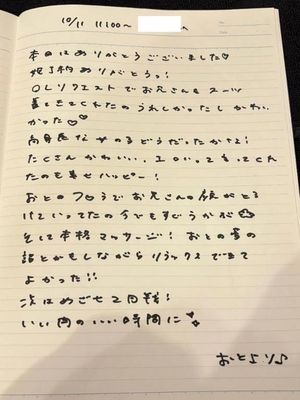 10/11 11:00〜
本日はありがとうございました♡
祝了納ありがとうっ!
OLリクエストでお兄さんもスーツ
着てきてくれたのうれしかったしかわい
かった♡♡
高身長な
どうだったかな?
たくさんかわいい、エロいって言ってくれ
たのも幸せハッピー!
おとのフロうでお兄さんの顔がとろ
けていってたの今でもすぐうかぶ
そして本格マッサージ!おとの
話とかもしながらリラックスできて
よかった!!
次はめざせ2回戦!
いい肉のいい時間に
おとより♪